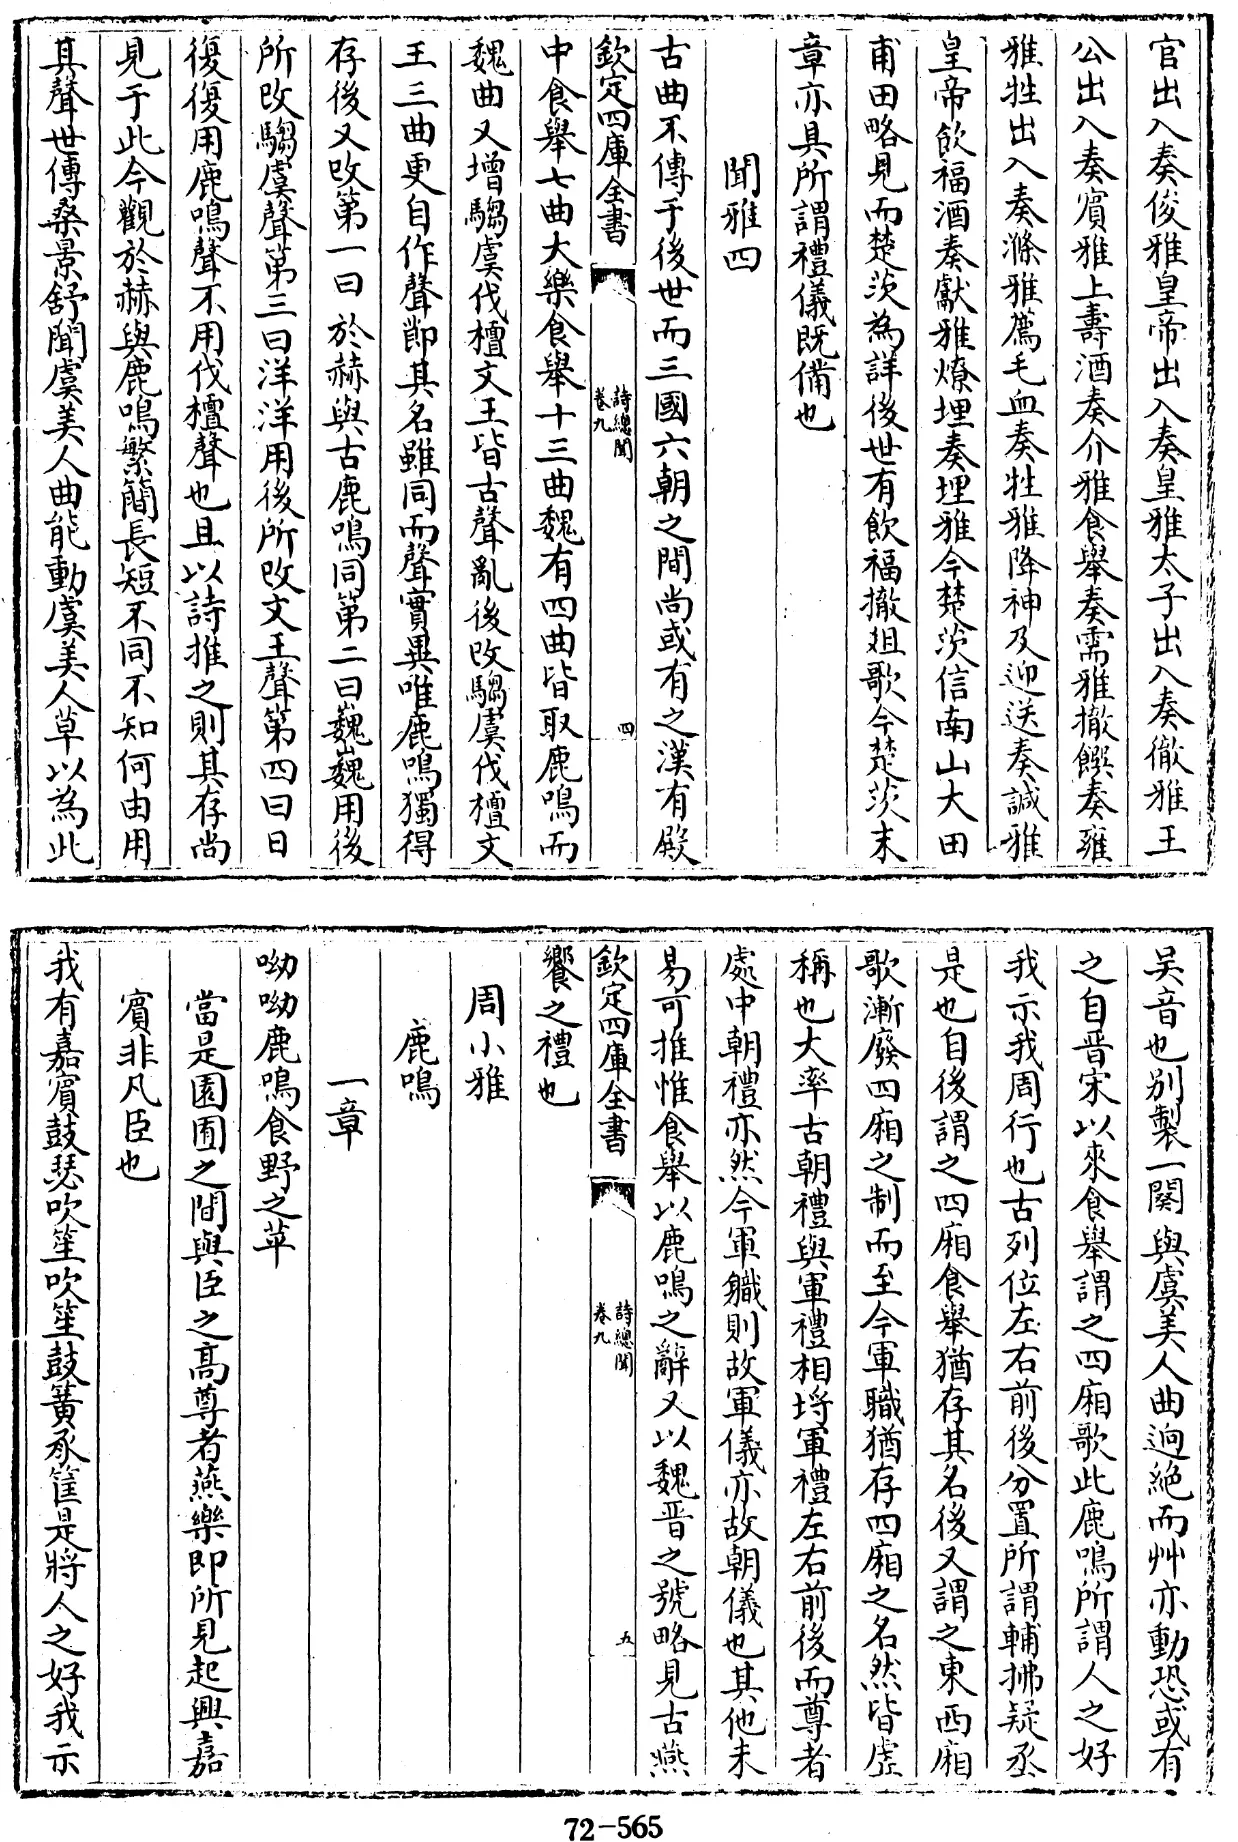 官出入奏俊雅皇帝出入奏皇雅太子出入奏徹雅王
公出入奏賔雅上壽酒奏介雅食舉奏需雅撤饌奏雍
雅牲出入奏滌雅薦毛血奏牲雅降神及迎送奏諴雅
皇帝飲福酒奏獻雅燎埋奏埋雅今楚茨信南山大田
甫田略見而楚茨為詳後世有飲福撤俎歌今楚茨末
章亦具所謂禮儀既備也
聞雅四
古曲不傳于後世而三國六朝之間尚或有之漢有殿
欽定四庫全書
詩總聞
卷九
四
中食舉七曲大樂食舉十三曲魏有四曲皆取鹿鳴而
魏曲又增騶虞伐檀文王皆古聲亂後改騶虞伐檀文
王三曲更自作聲節其名雖同而聲實異唯鹿鳴獨得
存後又改第一曰於赫與古鹿鳴同第二曰巍巍用後
所改騶虞聲第三曰洋洋用後所改文王聲第四曰日
復復用鹿鳴聲不用伐檀聲也且以詩推之則其存尚
見于此今觀於赫與鹿鳴繁簡長短不同不知何由用
其聲世傳桑景舒聞虞美人曲能動虞美人草以為此
吳音也別製一闋與虞美人曲逈絶而艸亦動恐或有
之自晋宋以來食舉謂之四廂歌此鹿鳴所謂人之好
我示我周行也古列位左右前後分置所謂輔拂疑丞
是也自後謂之四廂食舉猶存其名後又謂之東西廂
歌漸廢四廂之制而至今軍職猶存四廂之名然皆虛
稱也大率古朝禮與軍禮相埒軍禮左右前後而尊者
處中朝禮亦然今軍職則故軍儀亦故朝儀也其他未
易可推惟食舉以鹿鳴之辭又以魏晋之號略見古燕
欽定四庫全書
詩總聞
卷九
五
饗之禮也
周小雅
鹿鳴
一章
呦呦鹿鳴食野之苹
當是園囿之間與臣之髙尊者燕樂即所見起興嘉
賔非凡臣也
我有嘉賔鼓瑟吹笙吹笙鼓簧承筐是將人之好我示
72-565